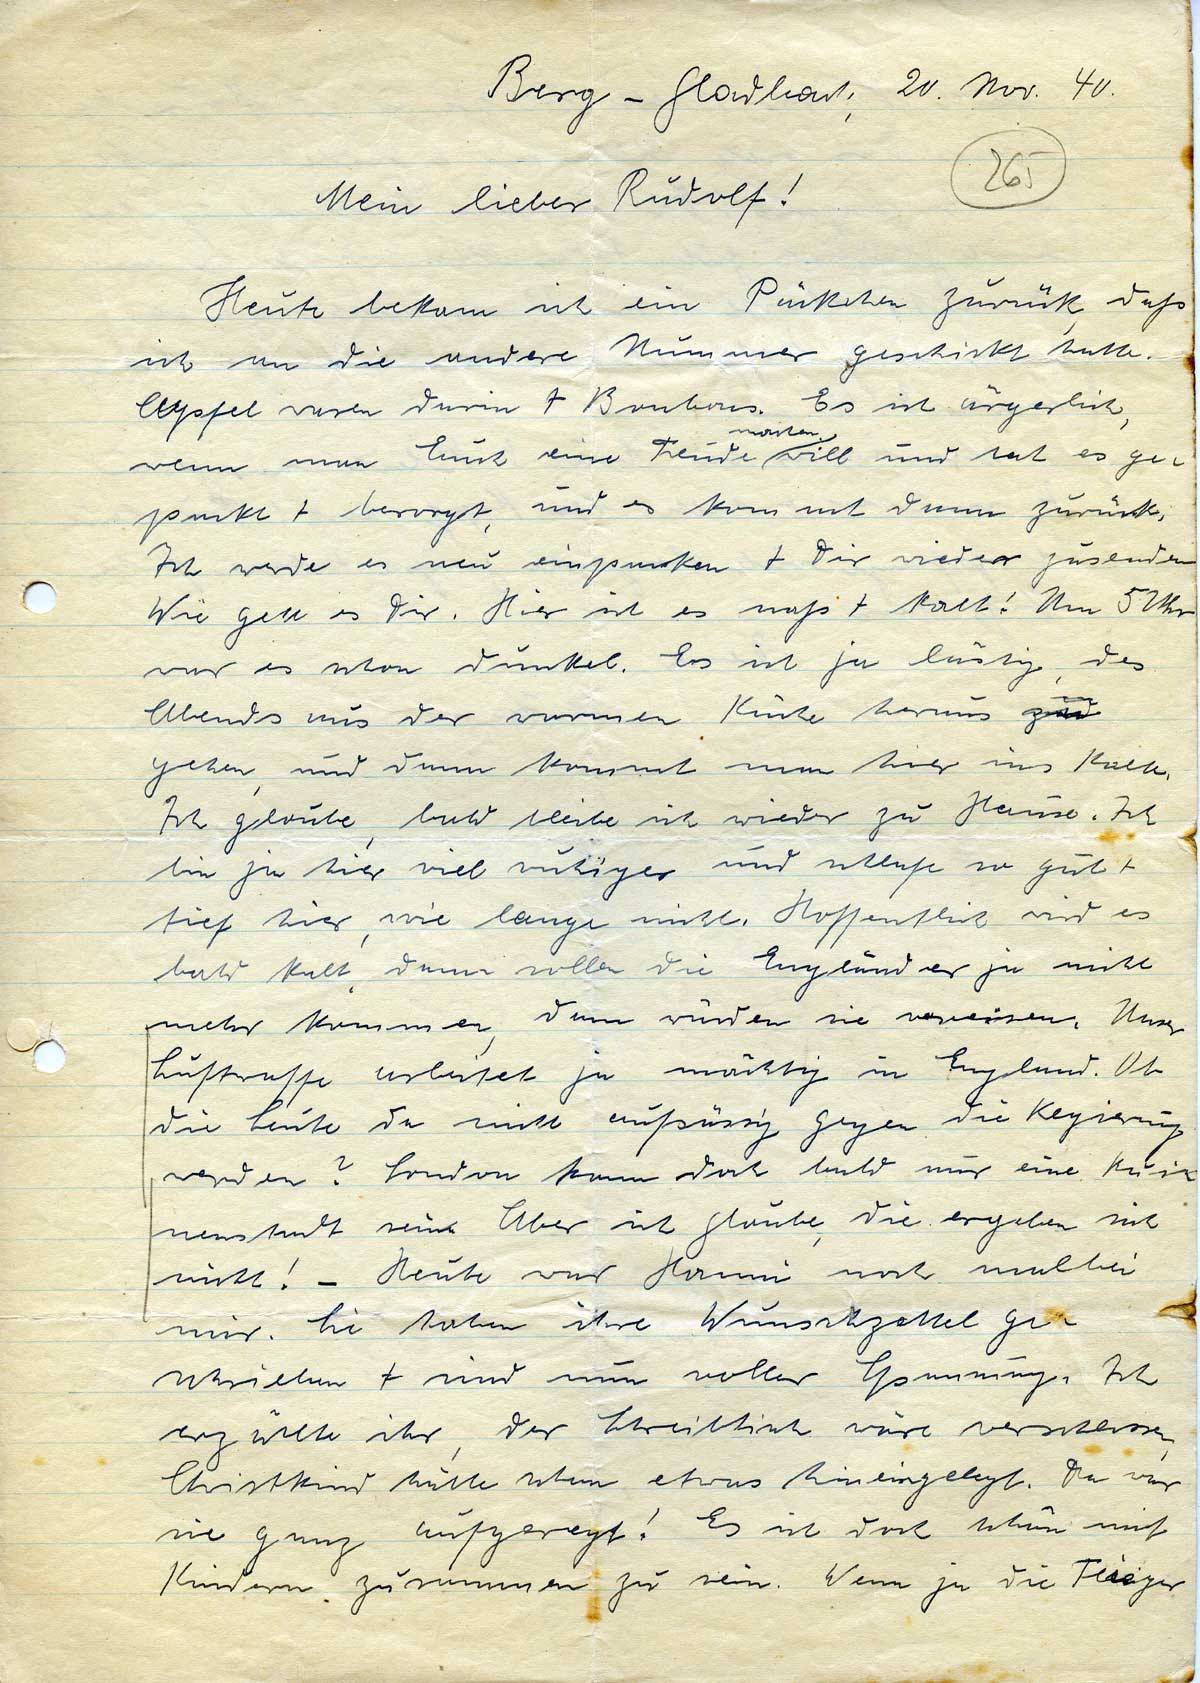 Berg-Gladbach, 20. Nov. 40.
265
Mein lieber Rudolf!
Heute bekam ich ein Päckchen zurück, daß
ich an die andere Nummer geschickt hatte.
Äpfel waren darin + Bonbons. Es ist ärgerlich,
wenn man Euch eine Freude machen will und hat es ge-
packt + besorgt, und es kommt dann zurück.
Ich werde es neu einpacken + Dir wieder zusenden
Wie geht es Dir. Hier ist es naß + kalt! Um 5 Uhr
war es schon dunkel. Es ist ja lästig, des
Abends aus der warmen Küche heraus zu
gehen, und dann kommt man hier ins Kalte.
Ich glaube, bald bleibe ich wieder zu Hause. Ich
bin ja hier viel ruhiger und schlafe so gut +
tief hier, wie lange nicht. Hoffentlich wird es
bald kalt, dann sollen die Engländer ja nicht
mehr kommen, dann würden sie vereisen. Unser
Luftwaffe arbeitet ja mächtig in England. Ob
die Leute da nicht aufsässig gegen die Regierung
werden? London kann doch bald nur eine Rui-
nenstadt sein. Aber ich glaube, die ergeben sich
nicht! – Heute war Hanni noch mal bei
mir. Sie haben ihre Wunschzettel ge-
schrieben + sind nun voller Spannung. Ich
erzählte ihr, der Schreibtisch wäre verschlossen,
Christkind hätte schon etwas hineingelegt. Da war
sie ganz aufgeregt! Es ist doch schön mit
Kindern zusammen zu sein. Wenn ja die Flieger